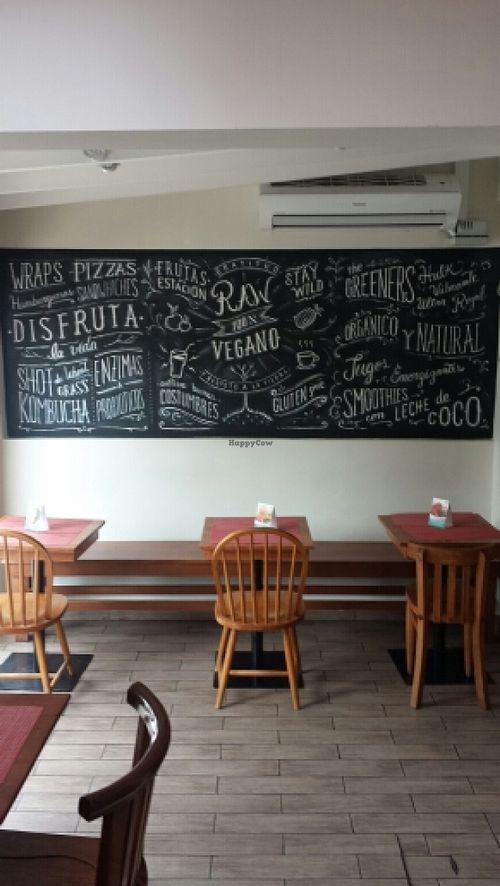 WRAPS PIZZAS
Hamburguesas SANDWICHES
DISFRUTA
la vida
SHOT de Wheat GRASS
KOMBUCHA
ENZIMAS
PROBIOTICOS
FRUTAS
ESTACION
COSTUMBRES
GRATITUD
RAW
100%
VEGANO
STAY
WILD
GLUTEN free
the GREENERS
Hulk
Vibrante
Ultra Royal
ORGANICO Y NATURAL
Jugos Energizantes
SMOOTHIES
con LECHE de COCO
HappyCow